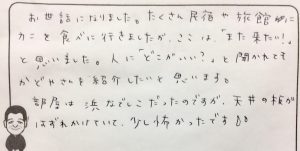 お世話になりました。たくさん民宿や旅館に
カニを食べに行きましたが、ここは、「また来たい！」
と思いました。人に「どこがいい？」と聞かれても
かどやさんを紹介したいと思います。
部屋は浜なでしこだったのですが、天井の板が
はずれかけていて、少し怖かったです